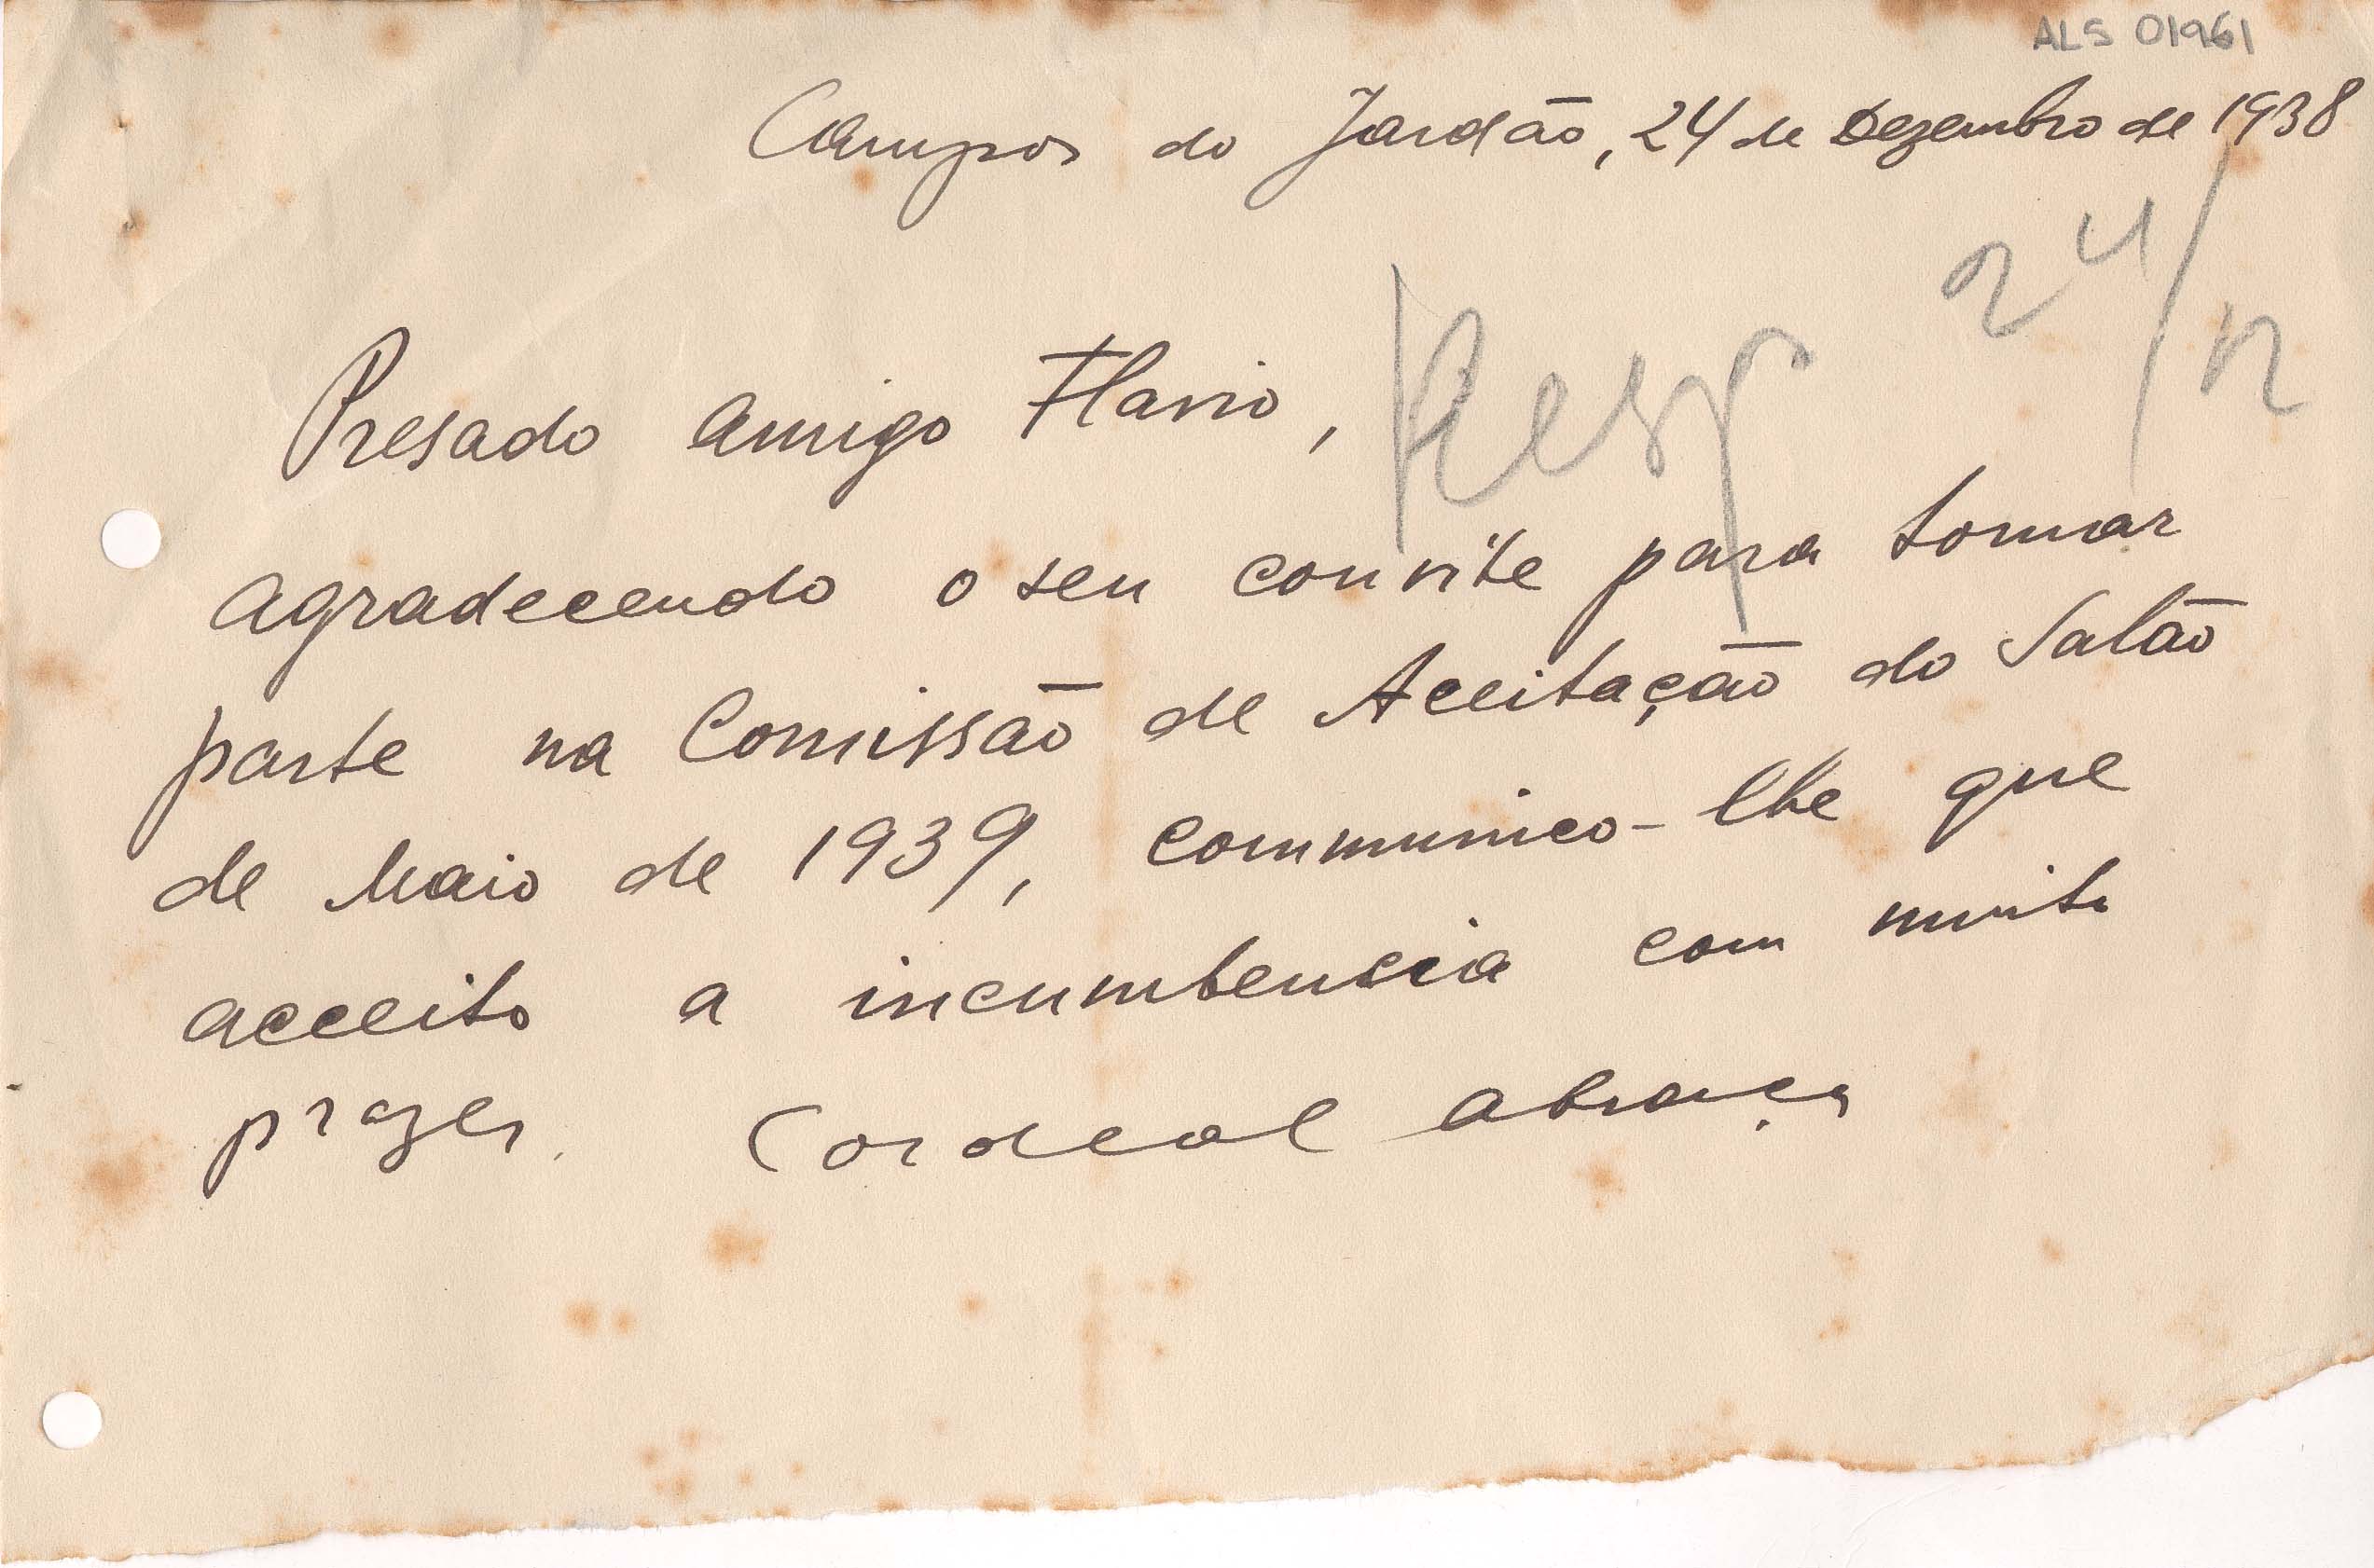 ALS 01961
Campos do Jordão, 24 de Dezembro de 1938
24/12
Resp
Presado amigo Flavio,
agradecendo o seu convite para tomar
parte na Comissão de Aceitação do Salão
de Maio de 1939, communico-lhe que
acceito a incumbencia com muito
prazer. Cordeal abraço